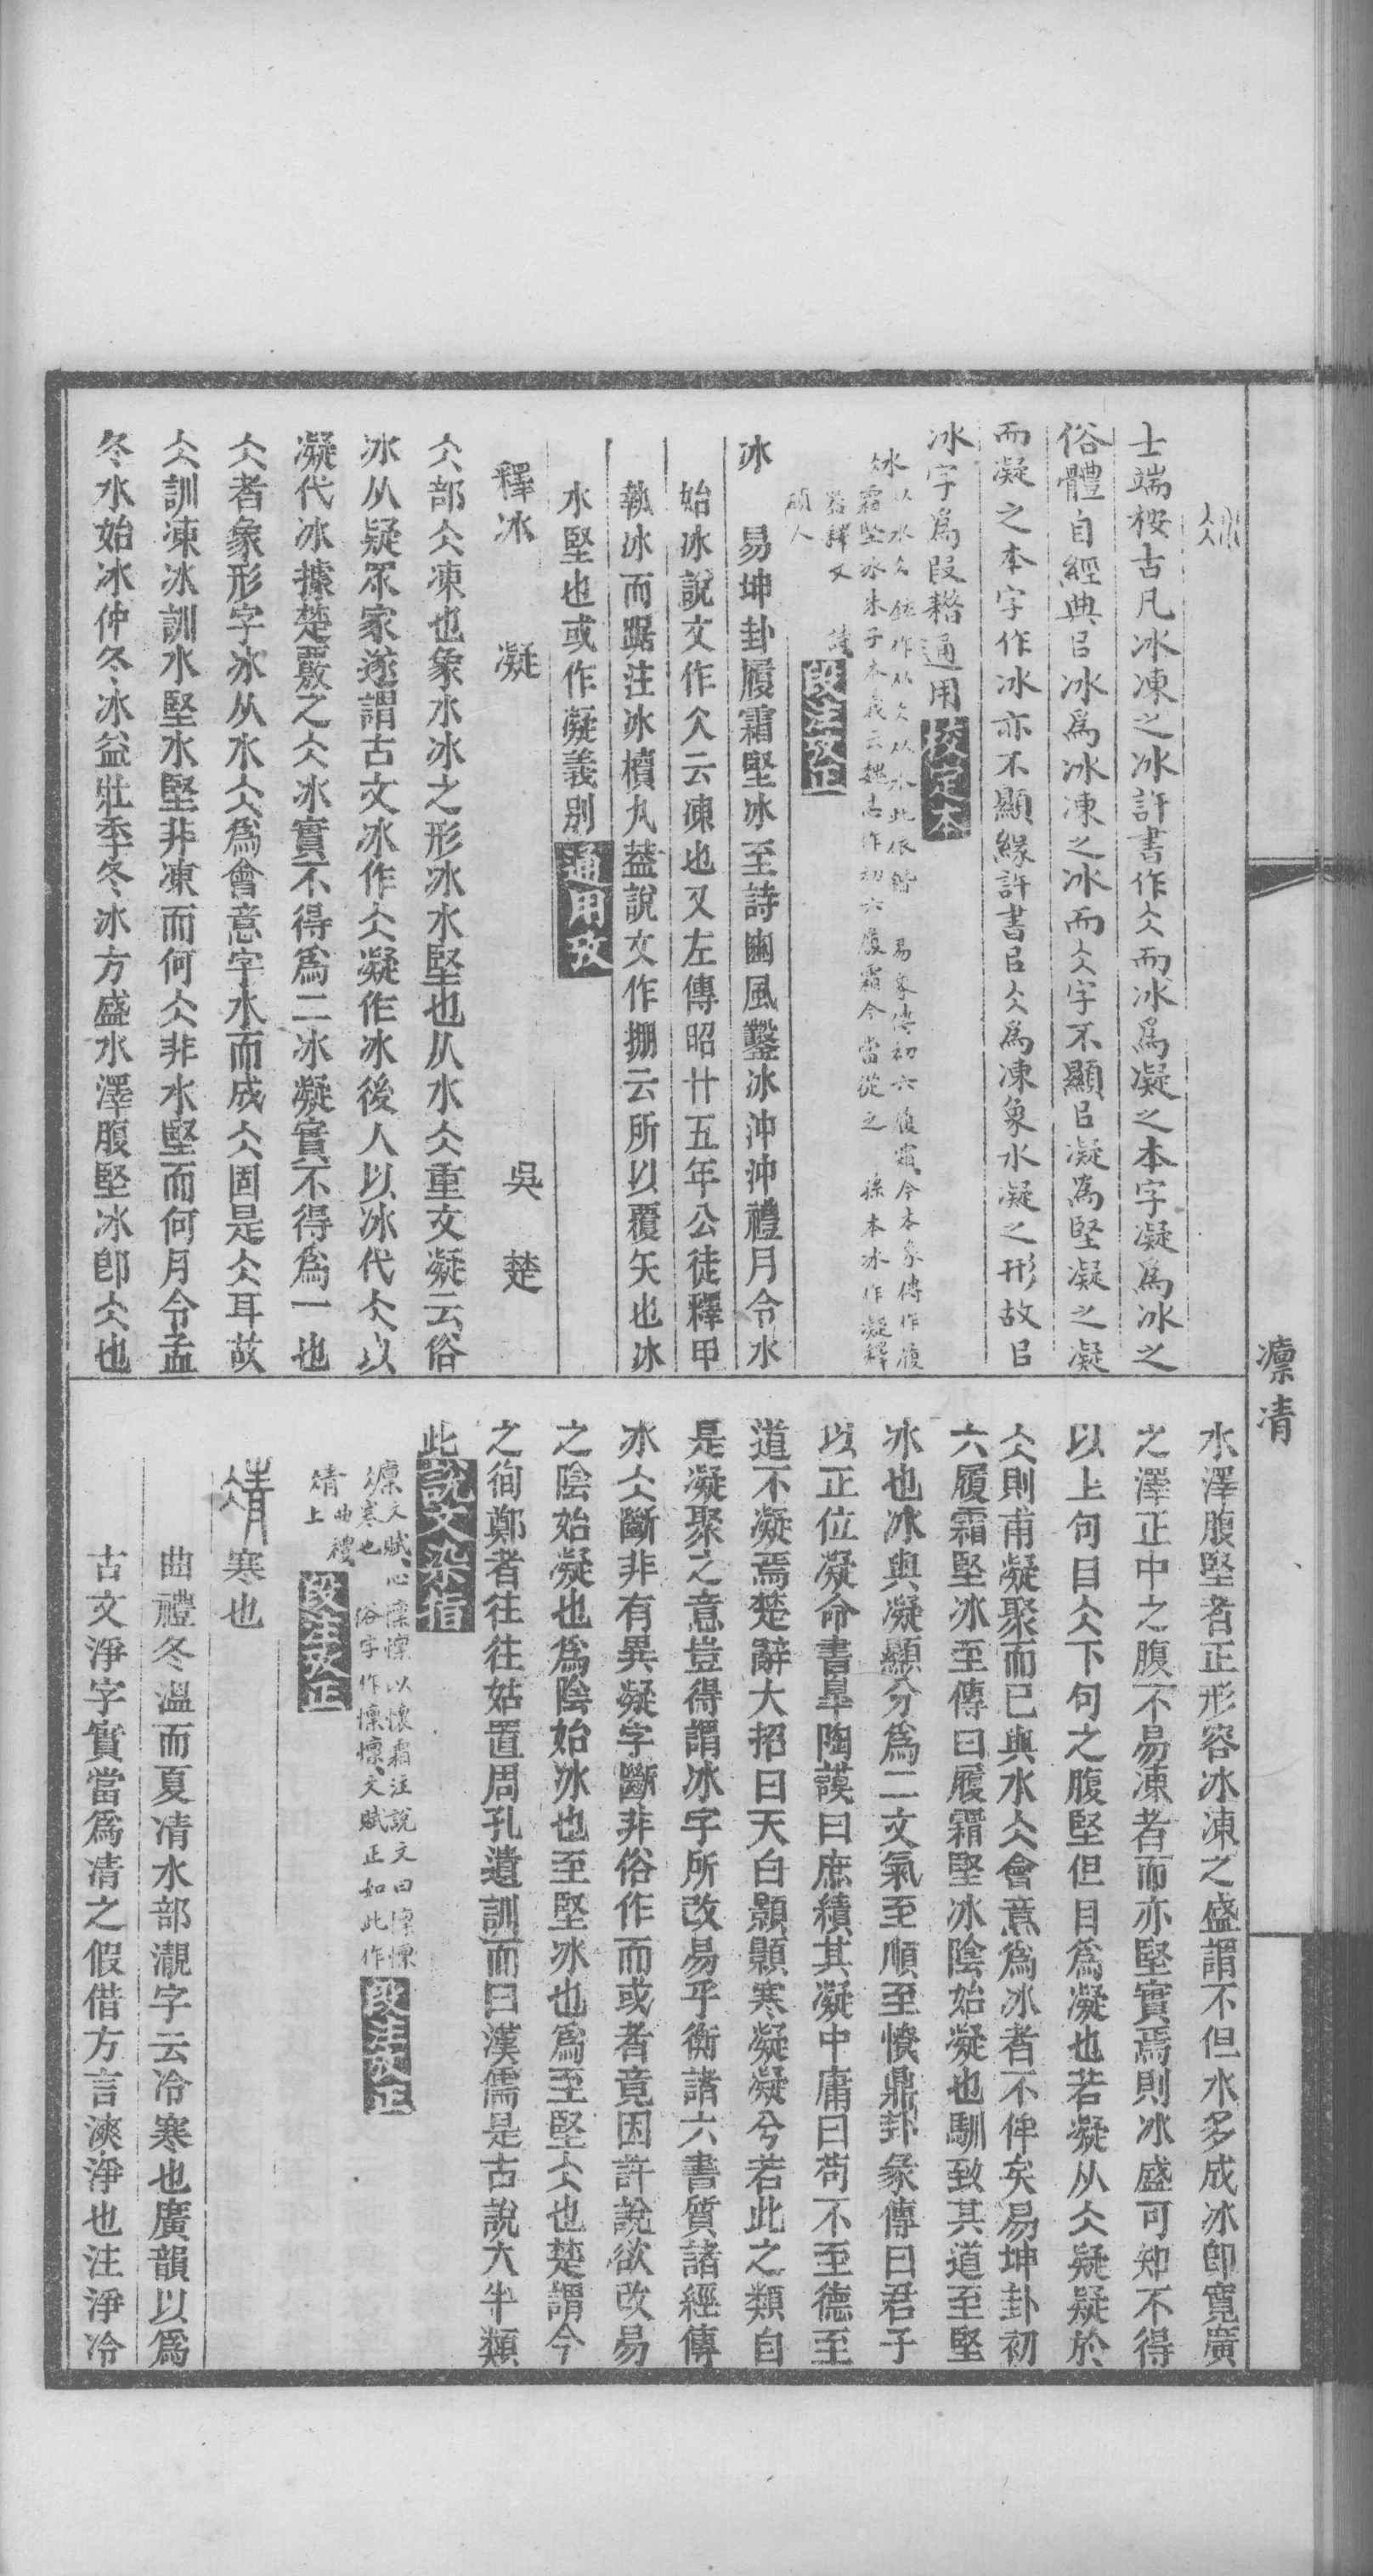 冰
士端桉古凡冰凍之冰許書作仌而冰爲凝之本字凝爲冰之
俗體自經典㠯冰爲冰凍之冰而仌字不顯㠯凝爲堅凝之凝
而凝之本字作冰亦不顯緣許書㠯仌爲凍象水凝之形故㠯
冰字爲叚藉通用校定本
冰以水仌 作从仌从水此依 易象傳初六履霜今本象傳作履
霜堅冰朱子本義云魏志作初六履霜今當從之 孫本冰作凝釋
器釋文 段注攷正
碩人
冰 易坤卦履霜堅冰至詩豳風鑿冰沖沖禮月令水
始冰說文作仌云凍也又左傳昭廿五年公徒釋甲
執冰而踞注冰櫝丸葢說文作掤云所以覆矢也冰
水堅也或作凝義別通用攷
釋冰 凝 吳楚
仌部仌凍也象水冰之形冰水堅也从水仌重文凝云俗
冰从疑眾家遂謂古文冰作仌凝作冰後人以冰代仌以
凝代冰據楚覈之仌冰實不得爲二冰凝實不得爲一也
仌者象形字冰从水仌爲會意字水而成仌固是仌耳故
仌訓凍冰訓水堅水堅非凍而何仌非水堅而何月令孟
冬水始冰仲冬冰益壯季冬冰方盛水澤腹堅冰卽仌也
凛凊
水澤腹堅者正形容冰凍之盛謂不但水多成冰卽寬廣
之澤正中之腹不易凍者而亦堅實焉則冰盛可知不得
以上句目仌下句之腹堅但目爲凝也若凝从仌疑疑於
仌則甫凝聚而已與水仌會意爲冰者不侔矣易坤卦初
六履霜堅冰至傳曰履霜堅冰陰始凝也馴致其道至堅
冰也冰與凝顯分爲二文氣至順至憭鼎卦彖傳曰君子
以正位凝命書皋陶謨曰庶績其凝中庸曰苟不至德至
道不凝焉楚辭大招曰天白顥顥寒凝凝兮若此之類自
是凝聚之意豈得謂冰字所改易乎衡諸六書質諸經傳
冰仌斷非有異凝字斷非俗作而或者竟因許說欲改易
之陰始凝也爲陰始冰也至堅冰也爲至堅仌也楚謂今
之徇鄭者往往姑置周孔遺訓而曰漢儒是古說大半類
此說文染指
凛文賦心懔懔以懷霜注說文曰懔懔
寒也 俗字作懍懍文賦正如此作段注攷正
凊曲禮
上 段注攷正
凊寒也
曲禮冬溫而夏凊水部瀙字云冷寒也廣韻以爲
古文淨字實當爲凊之假借方言漺淨也注淨冷